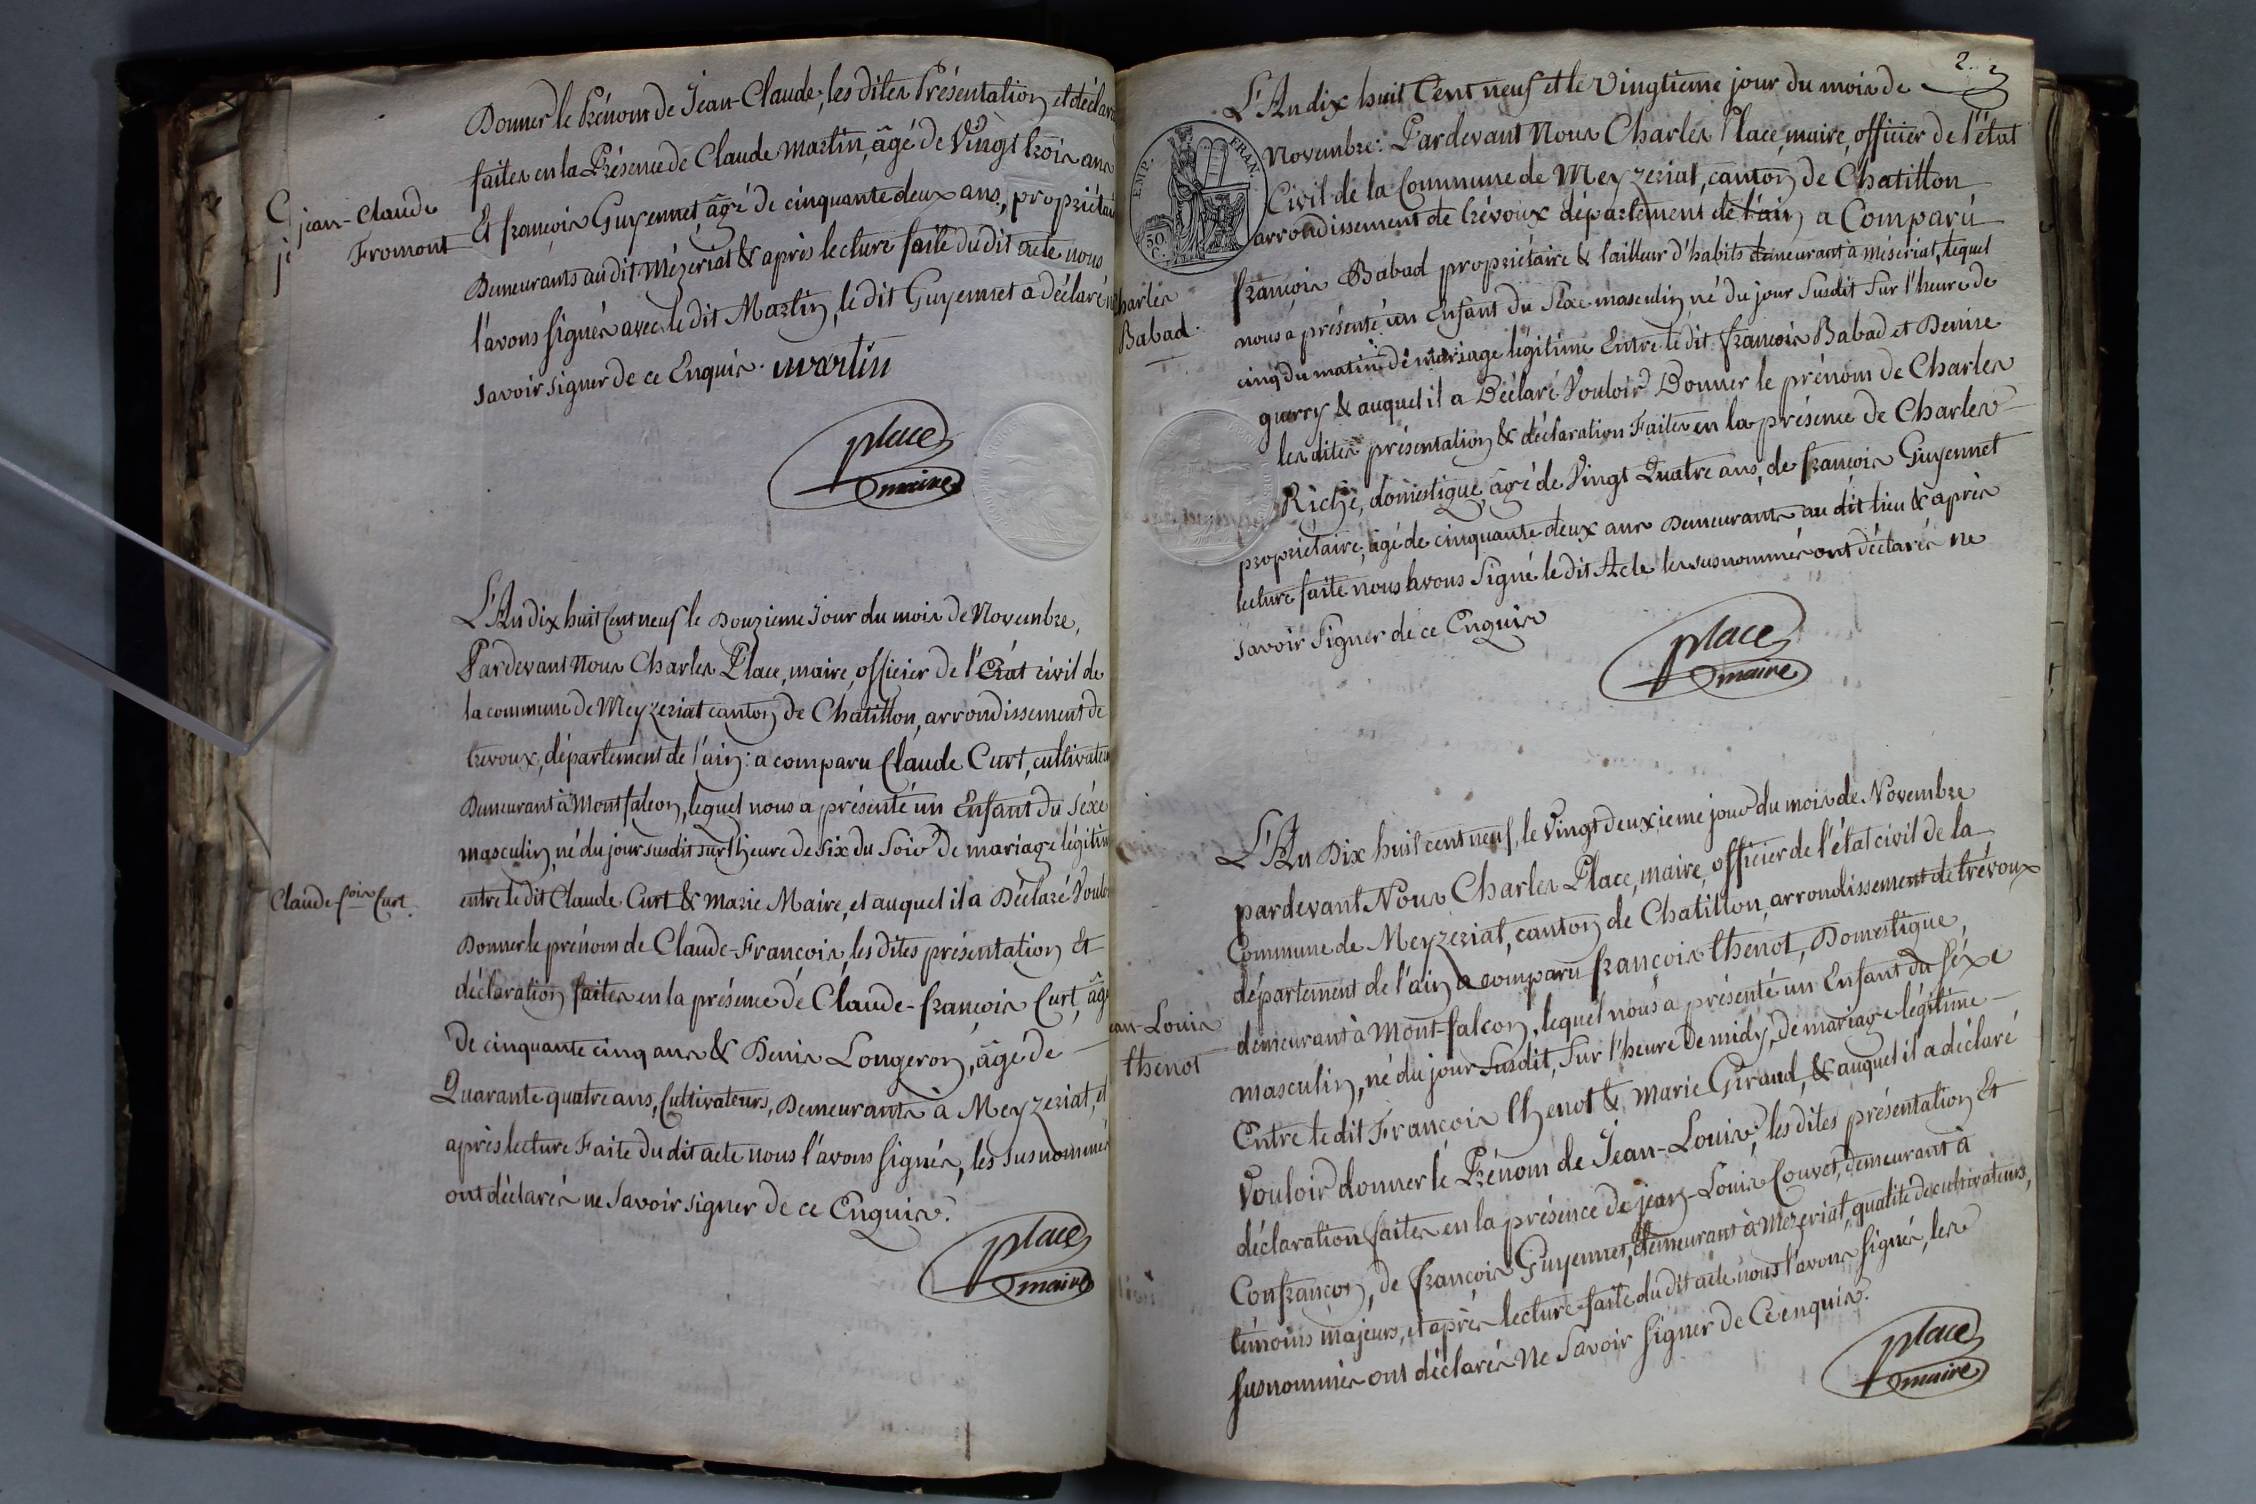 Donner le Prénom de Jean-Claude, les dites Présentation et déclara
faites en la Présence de Claude Martin, âgé de Vingt trois ans
Et françois Guyennet, âgé de cinquante deux ans, propriétai
Demeurants au dit Mézeriat & après lecture faite du dit acte nous
l'avons signés avec le dit Martin, le dit Guyennet a déclaré n
savoir signer de ce Enquis. martin
jean-Claude
Fromont
place
maire
L'An dix huit Cent neuf le Douzieme Jour du mois de Novembre,
Pardevant Nous Charles Place, maire, officier de l'Etat civil de
la commune de Meyzeriat canton de Chatillon, arrondissement de
trévoux, département de l'ain: a comparu Claude Curt, cultivateu
Demeurant à Montfalcon, lequel nous a présenté un Enfant du séxe
masculin, né du jour susdit sur l'heure de six du Soir de mariage légitim
entre le dit Claude Curt & marie Maire, et auquel il a Déclaré Voulo
Donner le prénom de Claude-François, les dites présentation Et
déclaration faites en la présence de Claude-françois Curt, âgé
de cinquante cinq ans & Denis Longeron, âgé de
Quarante quatre ans, Cultivateurs, Demeurants à Meyzeriat, et
après lecture Faite du dit acte nous l'avons signés, les susnommés
ont déclarés ne Savoir signer de ce Enquis.
Claude-fois Curt.
place
maire
2
L'An dix huit Cent neuf et le Vingtieme jour du mois de
Novembre: Pardevant Nous Charles Place, maire, officier de l'état
Civil de la Commune de Meyzeriat, canton de Chatillon
arrondissement de trévoux département de l'ain a Comparu
françois Babad propriétaire & tailleur d'habits demeurant à Méseriat, lequel
nous a présenté un Enfant du Sexe masculin, né du jour Susdit Sur l'heure de
cinq du matin de mariage légitime Entre le dit françois Babad et Denise
guerry & auquel il a Déclaré Vouloir Donner le prénom de Charles
les dites présentation & déclaration Faites en la présence de Charles
Riche, domestique, âgé de Vingt Quatre ans, de françois Guyennet
propriétaire, âgé de cinquante deux ans Demeurants au dit lieu & après
lecture faite nous avons Signé le dit Acte les susnommés ont déclarés ne
savoir Signer de ce Enquis
EMP. FRAN.
50
C.
harles
Babad.
place
maire
L'An Dix huit cent neuf, le Vingt deuxieme jour du mois de Novembre
pardevant Nous Charles Place, maire, officier de l'état civil de la
Commune de Meyzeriat, canton de Chatillon, arrondissement de trévoux
département de l'ain a comparu françois thenot, Domestique,
demeurant à Mont-falcon, lequel nous a présenté un Enfant du séxe
masculin, né du jour Susdit, Sur l'heure de midy, de mariage légitime
Entre le dit François thenot & marie Giraud, & auquel il a déclaré
Vouloir donner le Prénom de Jean-Louis, les dites présentation Et
déclaration faites en la présence de jean-Louis Couvet, demeurant à
Confrançon, de françois Guyennet, demeurant à Mézeriat, qualité de cultivateurs,
témoins majeurs, et après lecture faite du dit acte nous l'avons signés, les
susnommés ont déclarés Ne Savoir Signer de Ce enquis.
ean-Louis
thenot
place
maire